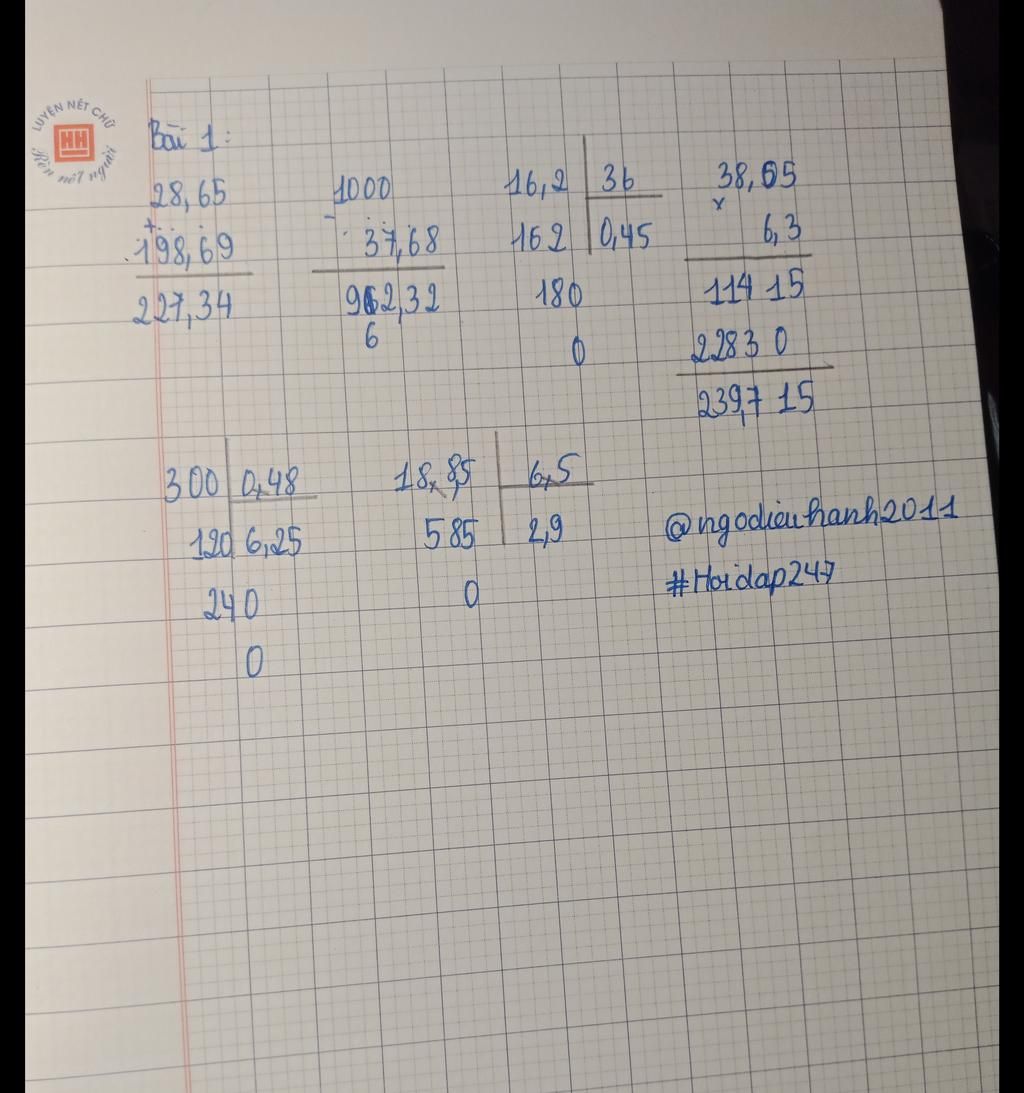 LUYỆN NÉT CHỮ
HH
Rèn nết người
Bài 1:
28,65 1000 16,2 36 38,05
+ - x
198,69 37,68 162 0,45 6,3
227,34 962,32 180 114 15
6 0 2283 0
239,7 15
300 0,48 18,85 6,5
120 6,25 585 2,9 @ngodieuhanh2011
240 0 #Hoidap247
0